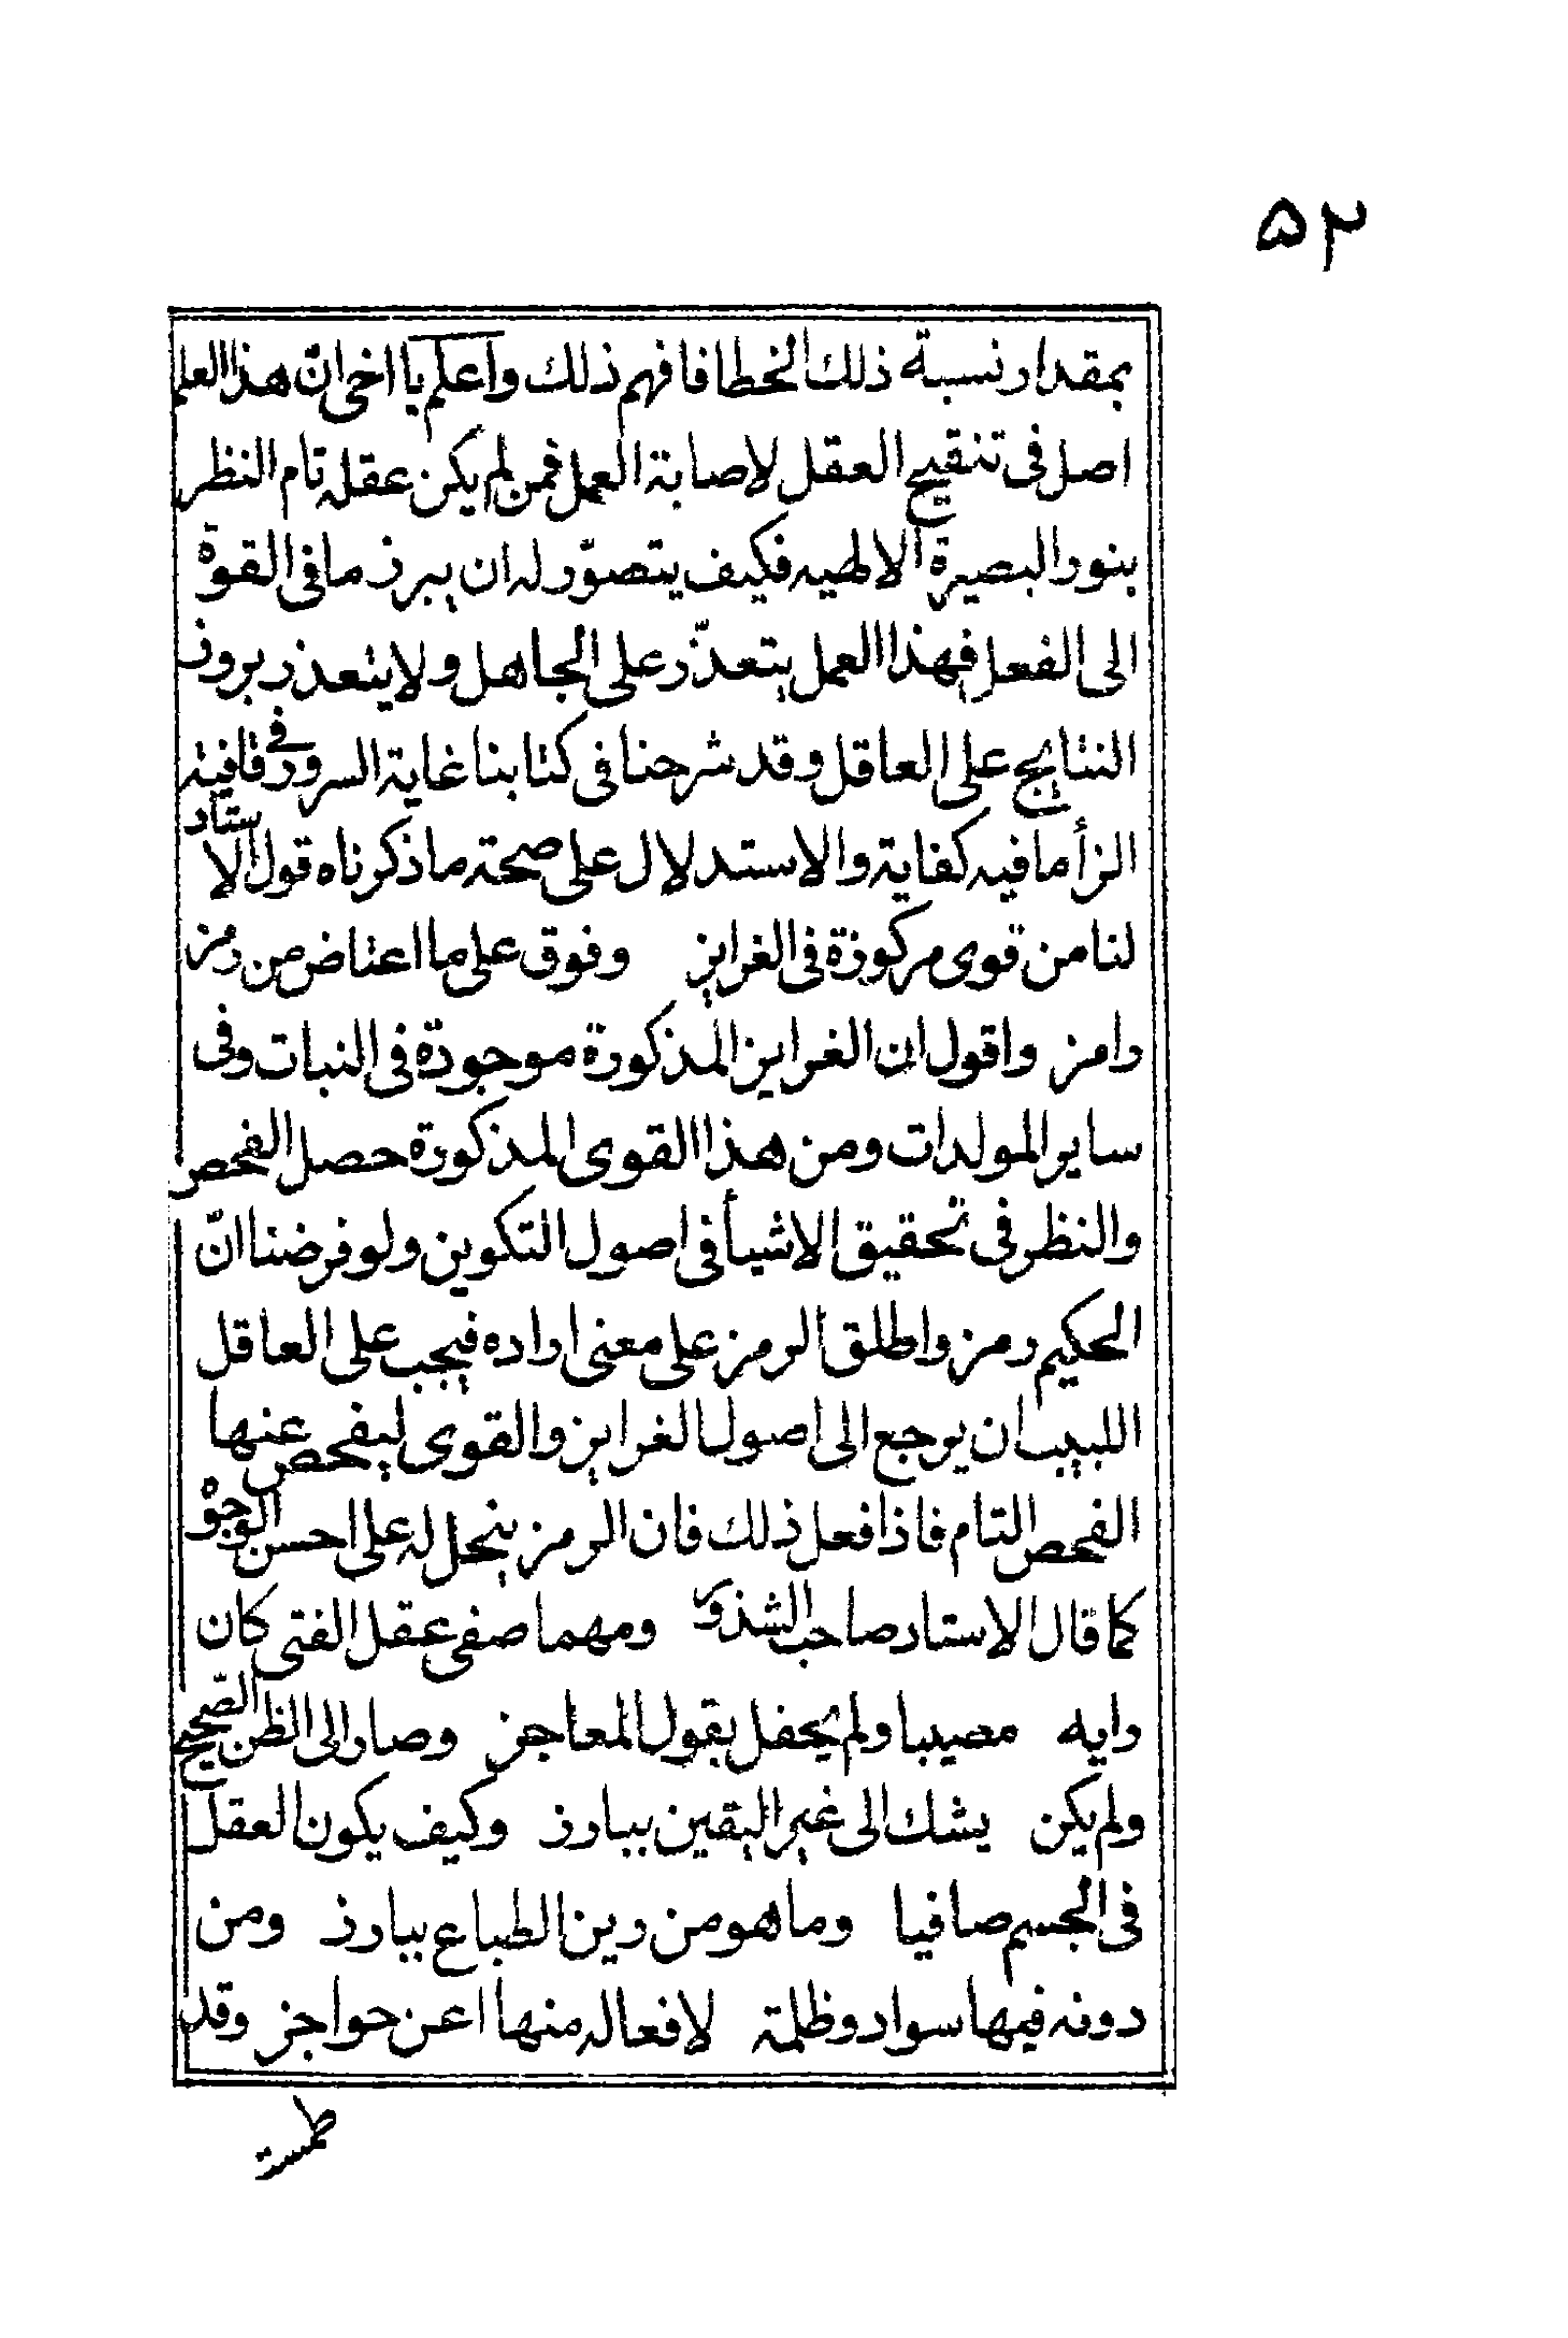 ۵۲
بمقدار نسبة ذلك الخطا فافهم ذلك واعلم يا اخى انّ هذا العلم
اصل فى تنقيح العقل لاصابة العمل فمن لم يكن عقله تام النظر
بنور البصيرة الالهيه فكيف يتصوّر له ان يبرز ما فى القوة
الى الفعل فهذا العمل يتعذّر على الجاهل ولا يتعذر بروز
النتايج على العاقل وقد شرحنا فى كتابنا غاية السرور فى قافية
الزأ ما فيه كفاية والاستدلال على صحة ما ذكرناه قول الاستاد
لنا من قوى مركوزة فى الغرايز وفوق على ما اعتاض من رمز
رامز واقول ان الغرايز المذكورة موجودة فى النبات وفى
ساير المولدات ومن هذا القوى المذكورة حصل الفحص
والنظر فى تحقيق الاشيأ فى اصول التكوين ولو فرضنا انّ
الحكيم رمز واطلق الرمز على معنى اراده فيجب على العاقل
اللبيب ان يرجع الى اصول الغرايز والقوى ليفحص عنها
الفحص التام فاذا فعل ذلك فان الرمز ينحل له على احسن الوجوه
كما قال الاستاد صاحب الشذور ومهما صفى عقل الفتى كان
رايه مصيبا ولم يحفل بقول المعاجز وصار الى الظن الصّحيح
ولم يكن يشك الى غير اليقين ببارز وكيف يكون العقل
فى الجسم صافيا وما هو من رين الطباع ببارز ومن
دونه فيها سواد وظلمة لافعاله منها اعن حواجز وقد
طمست